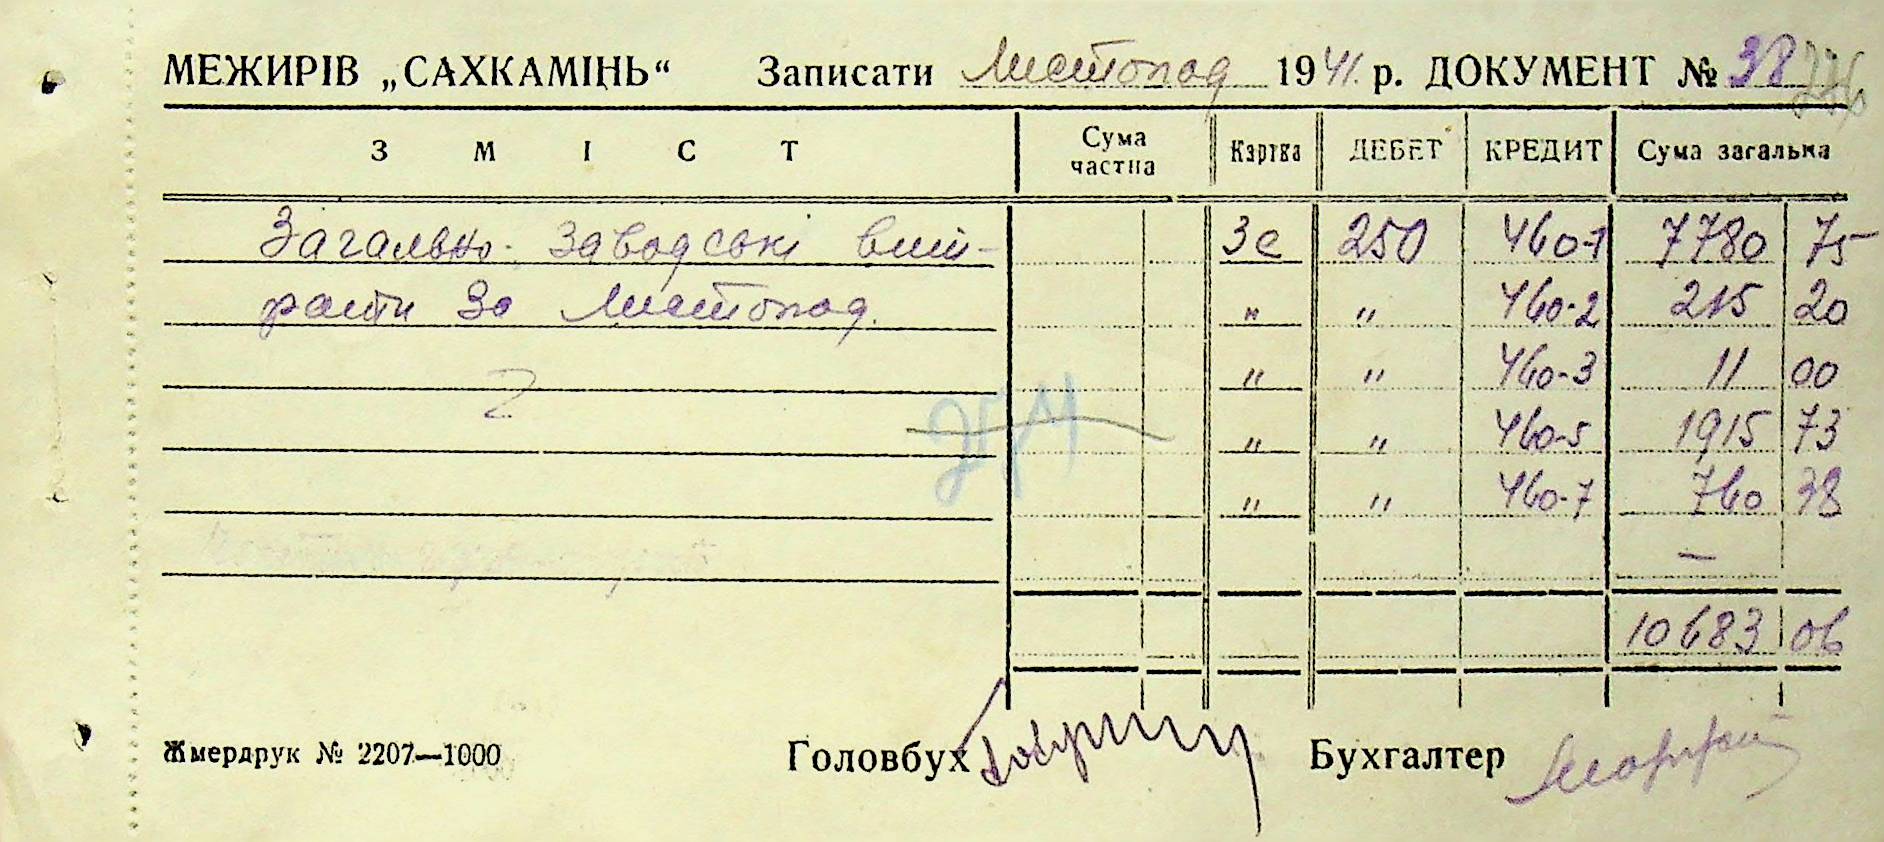 МЕЖИРІВ „САХКАМІНЬ“ Записати Листопад 1941 р. ДОКУМЕНТ № 38
ЗМІСТ Сума частна Картка ДЕБЕТ КРЕДИТ Сума загальна
Загально-заводські вит- Зс 250 460-1 7780 75
рати за Листопад. " " 460-2 215 20
" " 460-3 11 00
" " 460-5 1915 73
" " 460-7 760 38
—
10683 06
Жмердрук № 2207—1000 Головбух Бухгалтер